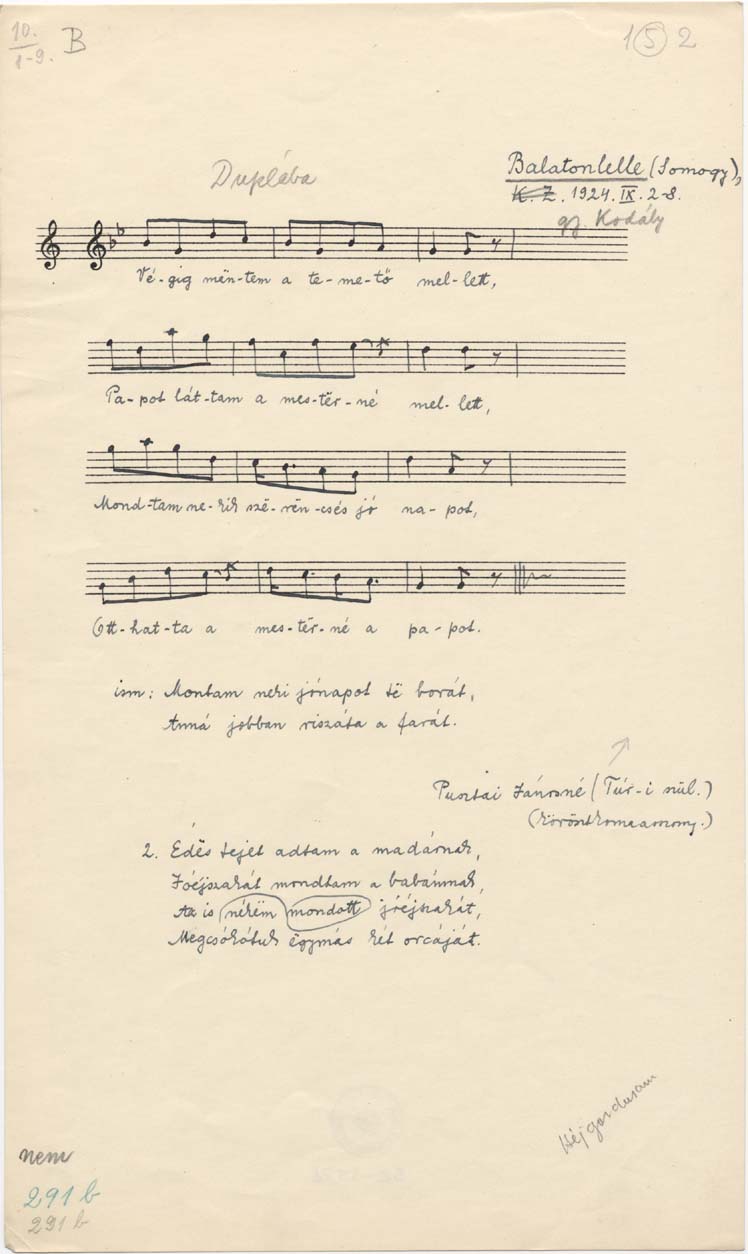 10.
1-9. B
1 5 2
Duplába
Balatonlelle (Somogy),
K. Z. 1924. IX. 2-8.
gy. Kodály
Vé-gig mën-tem a te-me-tő mel-lett,
Pa-pot lát-tam a mes-tër-né mel-lett,
Mond-tam ne-kik szë-rën-csés jó na-pot,
Ott-hat-ta a mes-tër-né a pa-pot.
ism: Montam neki jónapot së borát,
Anná jobban riszáta a farát.
Pusztai Jánosné (Túr-i szül.)
2. Édës tejet adtam a madárnak,
Jóéjszakát mondtam a babámnak,
Az is nékëm mondott jóéjszakát,
Mëgcsókótuk ëgymás két orcáját.
nem
291 b
291 b